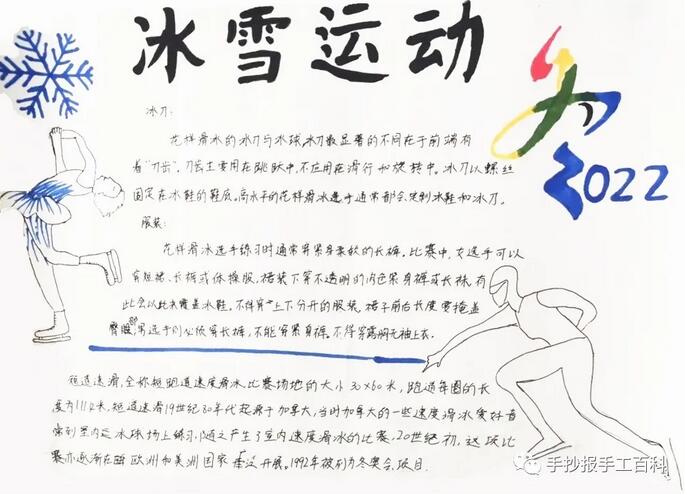 冰雪运动
2022
冰刀:
花样滑冰的冰刀与冰球冰刀最显著的不同在于前端有
着“刀齿”。刀齿主要用在跳跃中,不应用在滑行和旋转中。冰刀以螺丝
固定在冰鞋的鞋底。高水平的花样滑冰选手通常都会定制冰鞋和冰刀。
服装:
花样滑冰选手练习时通常穿紧身柔软的长裤。比赛中,女选手可以
穿短裙、长裤或体操服,裙装下穿不透明的肉色紧身裤或长袜,有
此会以此来覆盖冰鞋。不得穿上下分开的服装。裙子前后长度要掩盖
臀股部,男选手则必须穿长裤,不能穿紧身裤。不得穿露胸无袖上衣.
短道速滑,全称短跑道速度滑冰.比赛场地的大小30×60米,跑道每圈的长
度为111.12米,短道速滑19世纪80年代起源于加拿大,当时加拿大的一些速度滑冰爱好者
常到室内冰球场上练习,随之产生了室内速度滑冰的比赛,20世纪初,这项比
赛亦逐渐在欧洲和美洲国家广泛开展。1992年被列为冬奥会项目.
手抄报手工百科